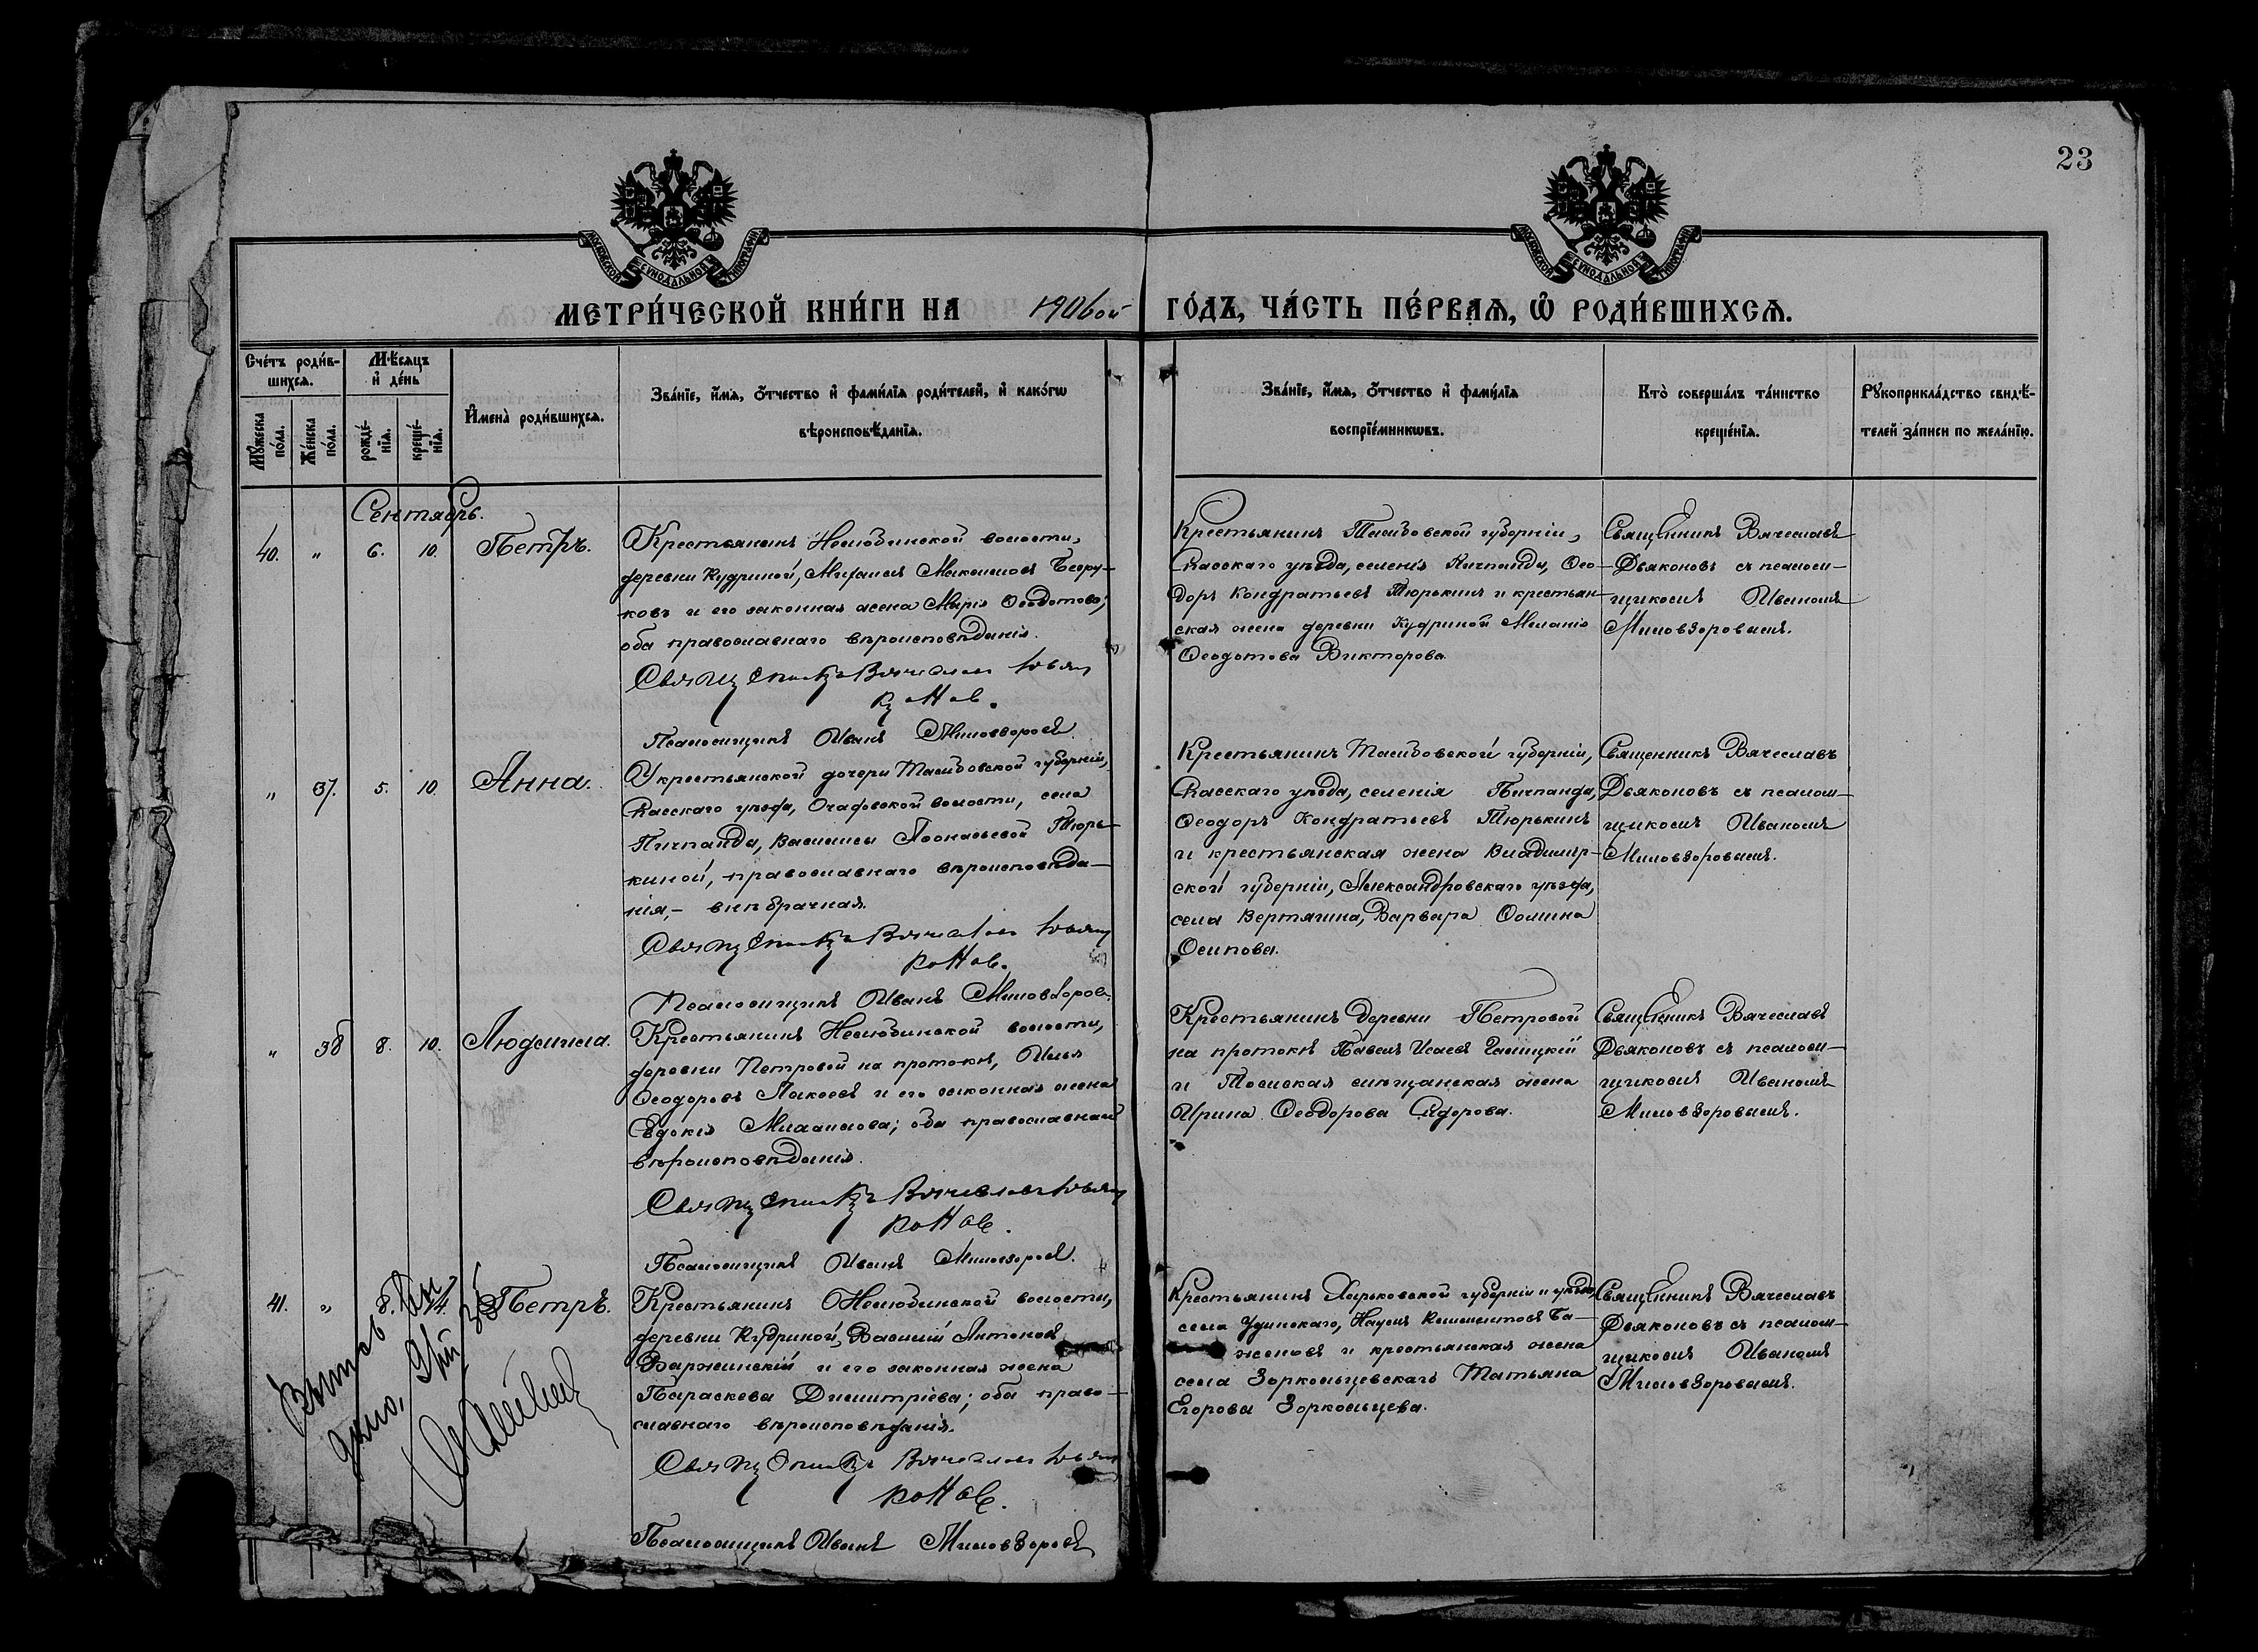 23
МОСКОВСКОЙ СУНОДАЛЬНОЙ ТИПОГРАФІИ
МОСКОВСКОЙ СУНОДАЛЬНОЙ ТИПОГРАФІИ
МЕТРИ́ЧЕСКОЙ КНИ́ГИ НА 1906ой ГО́ДЪ, ЧА́СТЬ ПЕ́РВАѦ, Ѽ РОДИ́ВШИХСѦ.
Сче́тъ роди́в-
шихсѧ.
Мꙋ́жеска
по́ла.
Же́нска
по́ла.
Мѣ́сяцъ
и҆ де́нь
рожде́-
нїѧ.
креще́-
нїѧ.
И҆мена̀ роди́вшихсѧ.
Зва́нїе, и҆́мѧ, ѻ҆́тчество и҆ фами́лїѧ роди́телей, и҆ како́гѡ
вѣроисповѣ́данїѧ.
Зва́нїе, и҆́мѧ, ѻ҆́тчество и҆ фами́лїѧ
воспрїе́мникѡвъ.
Кто̀ соверша́лъ та́инство
креще́нїѧ.
Рꙋкоприкла́дство свидѣ́-
телей за́писи по жела́нїю.
Сентябрь.
40. " 6. 10. Петръ.
Крестьянинъ Нелюбинской волости,
деревни Кудриной, Максимовъ
и его законная жена Марія Ѳеодотова;
оба православнаго вѣроисповѣданія.
Священникъ Вячеславъ Дьяко-
новъ.
Псаломщикъ Иванъ Миловзоровъ
Крестьянинъ Тамбовской губерніи,
Спасскаго уѣзда, селенія Ѳео-
доръ Кондратьевъ Тюрькинъ и крестьян-
ская жена деревни Кудриной Меланія
Ѳеодотова Викторова.
Священникъ Вячеславъ
Дьяконовъ съ псалом-
щикомъ Иваномъ
Миловзоровымъ.
" 37. 5. 10. Анна.
У крестьянской дочери Тамбовской губерніи,
Спасскаго уѣзда, волости, села
Пичпанда, Василисы Аѳонасьевой Тюрь-
киной, православнаго вѣроисповѣда-
нія, - внѣбрачная.
Священникъ Вячеславъ Дьяко-
новъ.
Псаломщикъ Иванъ Миловзоровъ.
Крестьянинъ Тамбовской губерніи,
Спасскаго уѣзда, селенія Пичпанда,
Ѳеодоръ Кондратьевъ Тюрькинъ
и крестьянская жена Владимір-
ской губерніи, Александровскаго уѣзда,
села Варвара Ѳомина
Осипова.
Священникъ Вячеславъ
Дьяконовъ съ псалом-
щикомъ Иваномъ
Миловзоровымъ.
" 38 8. 10. Людмила.
Крестьянинъ Нелюбинской волости,
деревни Петровой на протокѣ, Илья
Ѳеодоровъ и его законная жена
Евдокія оба православнаго
вѣроисповѣданія.
Священникъ Вячеславъ Дьяко-
новъ.
Псаломщикъ Иванъ Миловзоровъ.
Крестьянинъ деревни Петровой
на протокѣ Павелъ Исаевъ Галицкій
и Томская мѣщанская жена
Ирина Ѳеодорова Сидорова.
Священникъ Вячеславъ
Дьяконовъ съ псалом-
щикомъ Иваномъ
Миловзоровымъ.
41. " 8. 14. Петръ.
Крестьянинъ Нелюбинской волости,
деревни Кудриной, Василій Антоновъ
Варжинскій и его законная жена
Параскева Димитріева; оба право-
славнаго вѣроисповѣданія.
Священникъ Вячеславъ Дьяко-
новъ.
Псаломщикъ Иванъ Миловзоровъ
Крестьянинъ Харьковской губерніи и уѣзда,
села Наумъ Климентовъ Ба-
женовъ и крестьянская жена
села Зоркольцевскаго Татьяна
Егорова Зоркольцева.
Священникъ Вячеславъ
Дьяконовъ съ псалом-
щикомъ Иваномъ
Миловзоровымъ.